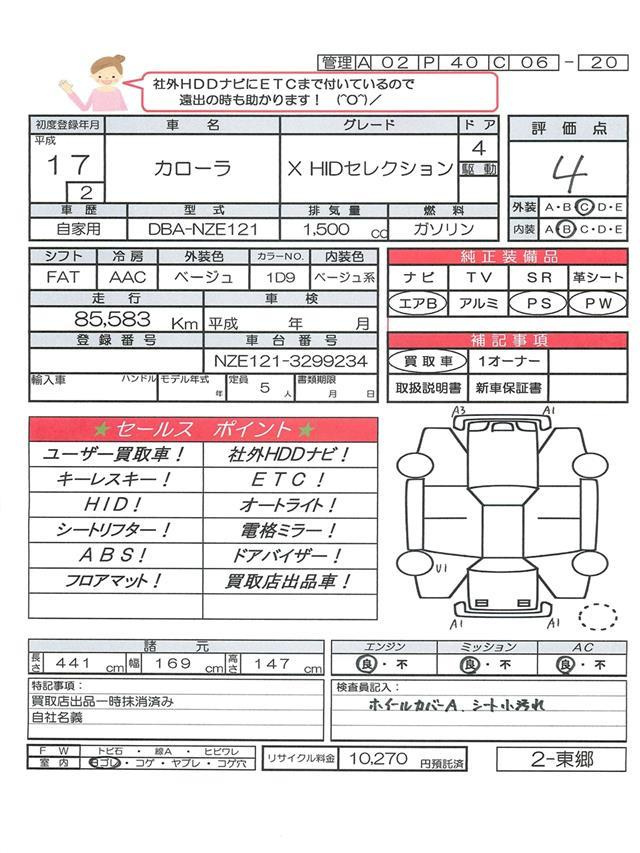 管理 A 02 P 40 C 06 - 20
社外HDDナビにETCまで付いているので
遠出の時も助かります！ (^O^)／
初度登録年月 車名 グレード ドア
平成 17 2 カローラ X HIDセレクション 4
駆動
評価点
4
外装 A・B・C・D・E
内装 A・B・C・D・E
車歴 型式 排気量 燃料
自家用 DBA-NZE121 1,500 cc ガソリン
シフト 冷房 外装色 カラーNO. 内装色
FAT AAC ベージュ 1D9 ベージュ系
走行 車検
85,583 Km 平成 年 月
登録番号 車台番号
NZE121-3299234
輸入車 ハンドル モデル年式 年 定員 5 人 書類期限 月 日
純正装備品
ナビ TV SR 革シート
エアB アルミ PS PW
補記事項
買取車 1オーナー
取扱説明書 新車保証書
★ セールス ポイント ★
ユーザー買取車！ 社外HDDナビ！
キーレスキー！ ETC！
HID！ オートライト！
シートリフター！ 電格ミラー！
ABS！ ドアバイザー！
フロアマット！ 買取店出品車！
A3 A1
U1
A1 A1
諸元
長さ 441 cm 幅 169 cm 高さ 147 cm
エンジン ミッション AC
良・不 良・不 良・不
特記事項：
買取店出品一時抹消済み
自社名義
検査員記入：
ホイールカバーA、シート小汚れ
FW トビ石 ・ 線A ・ ヒビワレ
室内 ヨゴレ・コゲ・ヤブレ・コゲ穴
リサイクル料金 10,270 円預託済
2-東郷